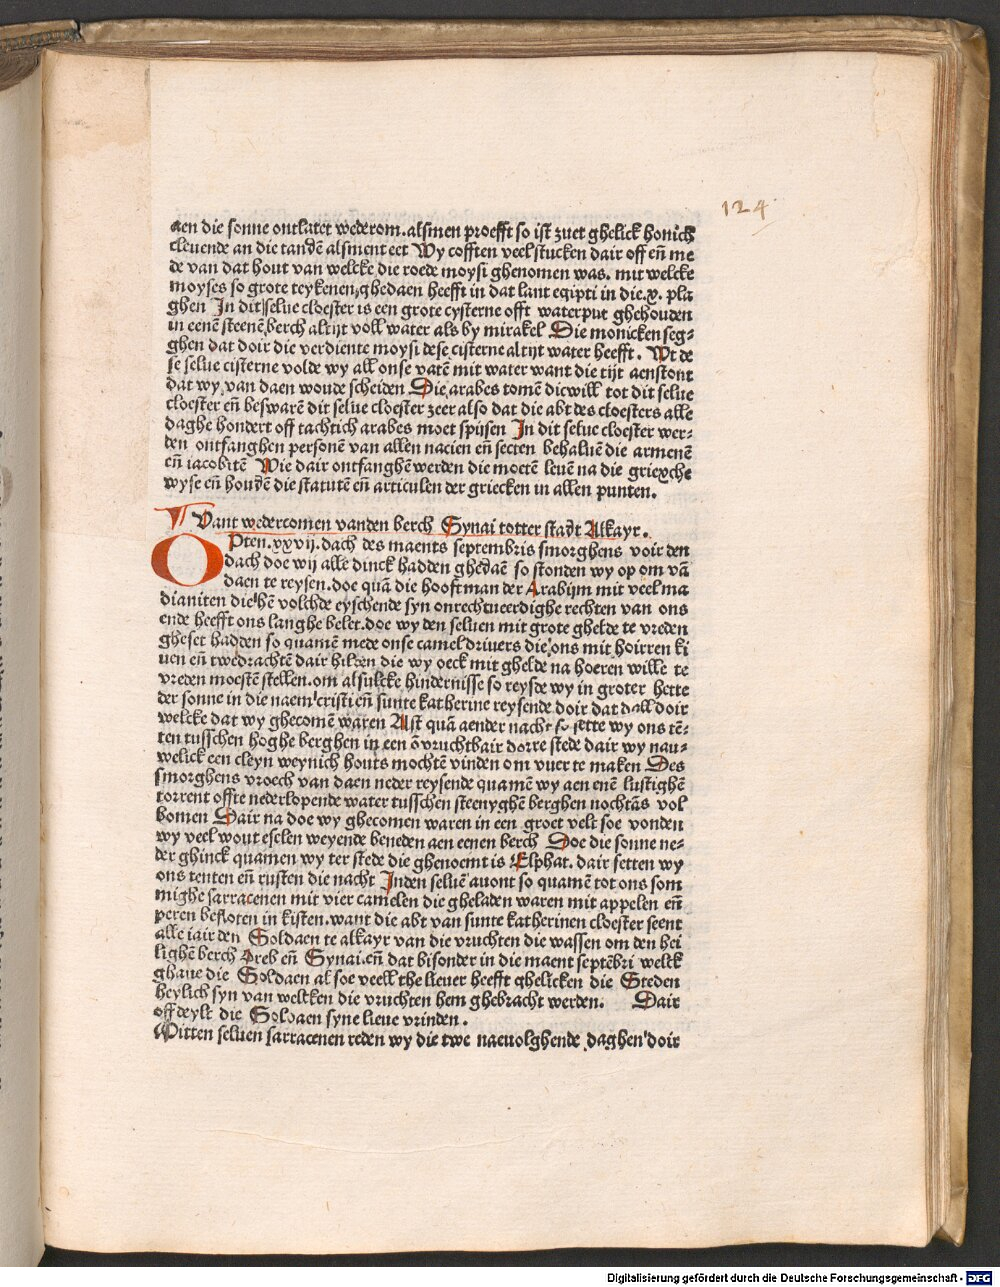 124
aen die sonne ontlatet wederom. alsmen proefft so ist zuet ghelick honich
cleuende an die tandē alsment eet Wy cofften veel stucken dair off eñ me
de van dat hout van welcke die roede moysi ghenomen was. mit welcke
moyses so grote teykenen ghedaen heefft in dat lant egipti in die .x. pla
ghen In dit selue cloester is een grote cysterne offt waterput ghehouden
in eenē steenē berch altijt voll water als by mirakel Die monicken seg⸗
ghen dat doir die verdiente moysi dese cisterne altijt water heefft. Wt de
se selue cisterne volde wy all onse vatē mit water want die tijt aenstont
dat wy van daen woude scheiden Die arabes comē dicwill tot dit selue
cloester eñ beswarē dit selue cloester zeer also dat die abt des cloesters alle
daghe hondert off tachtich arabes moet spijsen In dit selue cloester wer⸗
den ontfanghen personē van allen nacien eñ secten behaluē die armenē
eñ iacobitē Wie dair ontfanghē werden die moetē leuē na die griexche
wyse eñ houdē die statutē eñ articulen der griecken in allen punten.
Vant wedercomen vanden berch Synai totter stadt Alkayr.
OPten .xxvij. dach des maents septembris smorghens voir den
dach doe wij alle dinck hadden ghedaē so stonden wy op om vā
daen te reysen. doe quā die hooftman der Arabijm mit veel ma
dianiten die hē volchde eyschende syn onrechtueerdighe rechten van ons
ende heefft ons langhe belet. doe wy den seluen mit grote ghelde te vreden
gheset hadden so quamē mede onse cameldriuers die ons mit hoirren ki
uen eñ twedrachtē dair hilden die wy oeck mit ghelde na hoeren wille te
vreden moestē stellen. om alsulcke hindernisse so reysde wy in groter hette
der sonne in die naem cristi eñ sunte katherine reysende doir dat dall doir
welcke dat wy ghecomē waren Alst quā aender nacht so sette wy ons tē⸗
ten tusschen hoghe berghen in een ōvruchtbair dorre stede dair wy nau⸗
welick een cleyn weynich houts mochtē vinden om vuer te maken Des
smorghens vroech van daen neder reysende quamē wy aen enē lustighē
torrent offte nederlopende water tusschen steenyghē berghen nochtās vol
bomen Dair na doe wy ghecomen waren in een groet velt soe vonden
wy veel wout eselen weyende beneden aen eenen berch Doe die sonne ne⸗
der ghinck quamen wy ter stede die ghenoemt is Elphat. dair setten wy
ons tenten eñ rusten die nacht Inden seluē auont so quamē tot ons som
mighe sarracenen mit vier camelen die gheladen waren mit appelen eñ
peren besloten in kisten. want die abt van sunte katherinen cloester seent
alle iair den Soldaen te alkayr van die vruchten die wassen om den hei
lighē berch Oreb eñ Synai. eñ dat bisonder in die maent septēbri welck
ghaue die Soldaen al soe veell the lieuer heefft ghelicken die Steden
heylich syn van welcken die vruchten hem ghebracht werden. Dair
off deylt die Soldaen syne lieue vrinden.
Mitten seluen sarracenen reden wy die twe naeuolghende daghen doir
Digitalisierung gefördert durch die Deutsche Forschungsgemeinschaft - DFG